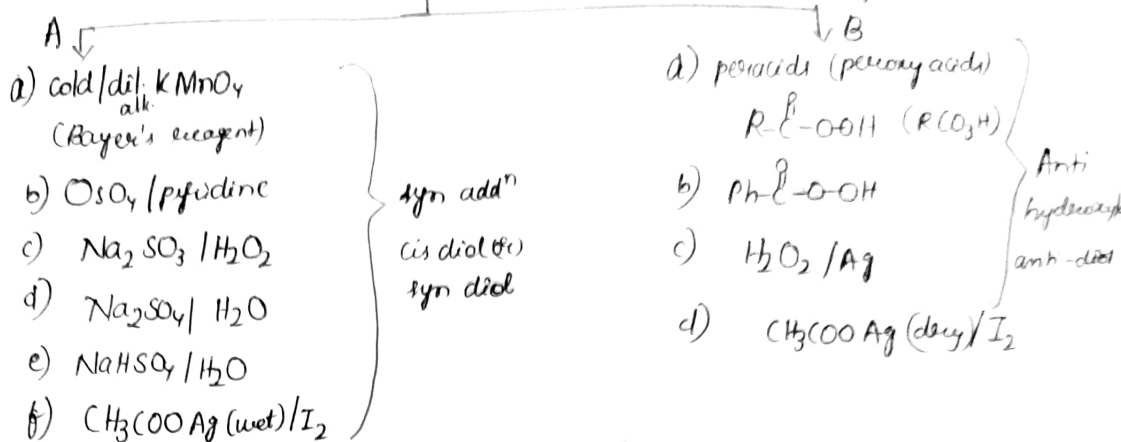 A
a) cold/dil. KMnO4
alk.
(Bayer's reagent)
b) OsO4 / pyridine
c) Na2SO3 / H2O2
d) Na2SO4 / H2O
e) NaHSO4 / H2O
f) CH3COOAg (wet) / I2
syn addn
cis diol (or)
syn diol
B
a) peracids (peroxy acids)
O
R-C-O-OH (RCO3H)
b) Ph-C-O-OH
O
c) H2O2 / Ag
d) CH3COOAg (dry) / I2
Anti
anti-diol